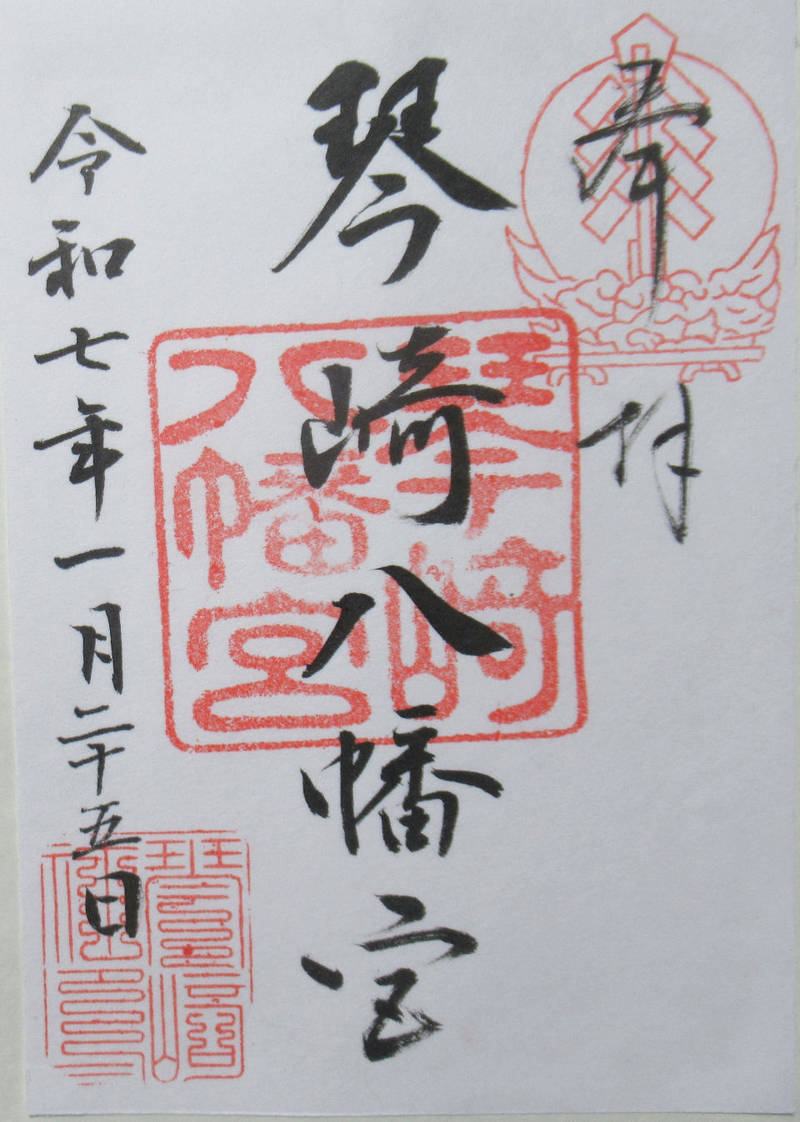 奉拝
琴崎八幡宮
琴崎八幡宮
令和七年一月二十五日